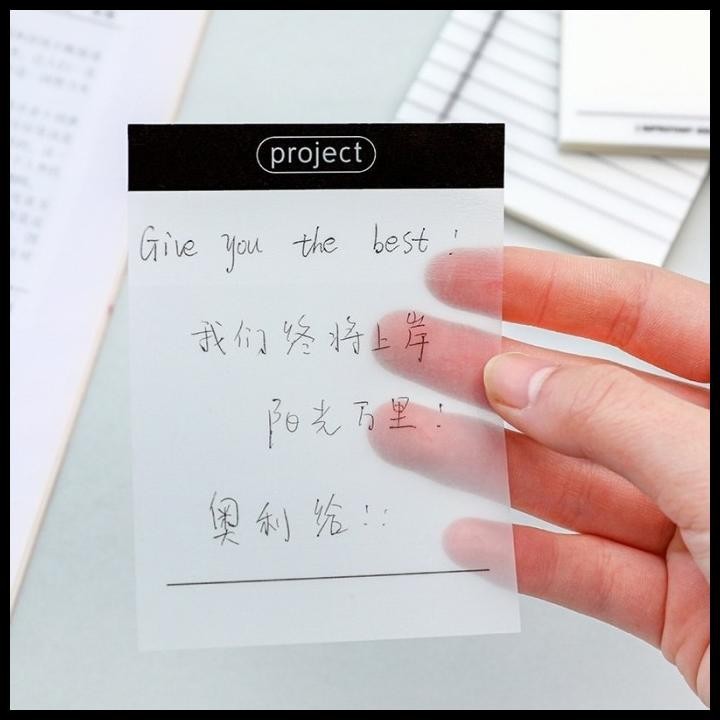 project
Give you the best!
我们终将上岸
阳光万里!
奥利给!!